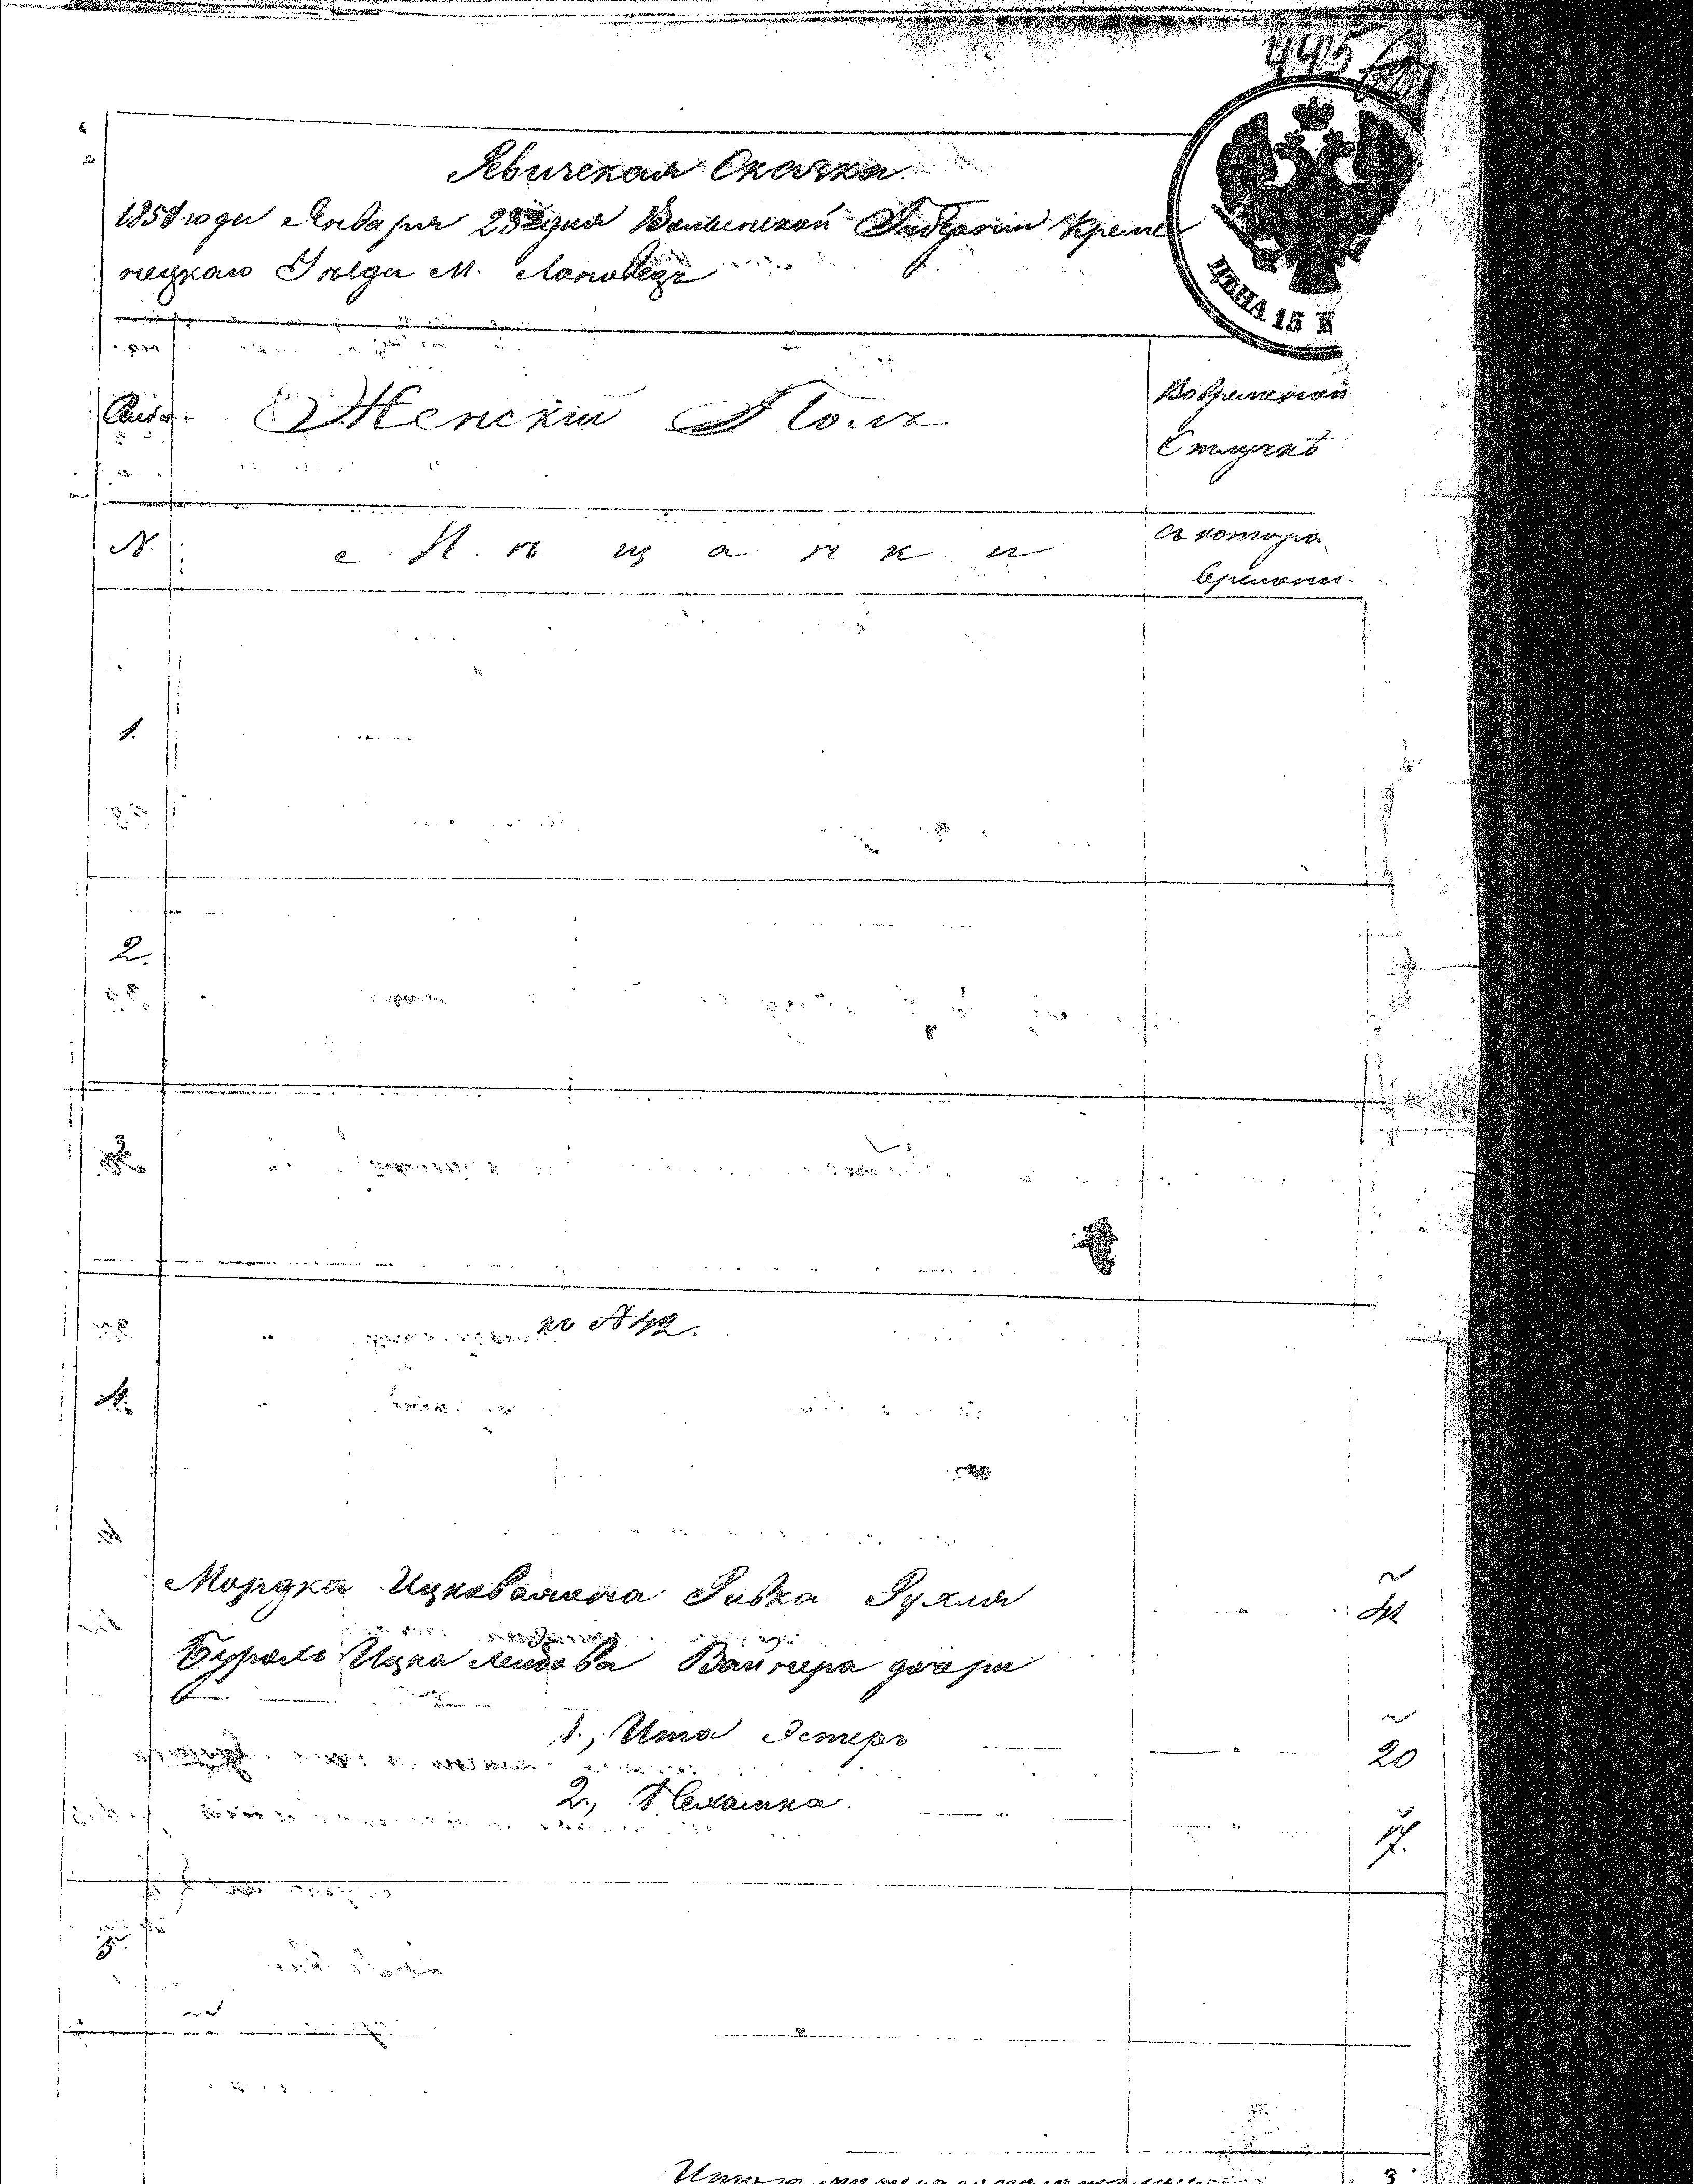 445
Ревижская Сказка
1851 года Января 23 дня Волынской Губерніи Креме
нецкаго Уезда М. Лановецъ
ЦѢНА 15 К
Семьи
Женскій Полъ
Во временной
Отлучкѣ
N.
Мѣщанки
съ котора
времени
1.
2.
3
къ N 42.
4.
Мордка Ицковаго жена Ривка Рухля
41
Ицка Лейбова Вайнера дочери
1., Ита Эстеръ
20
2., Нехамка.
17.
5
Итого
3